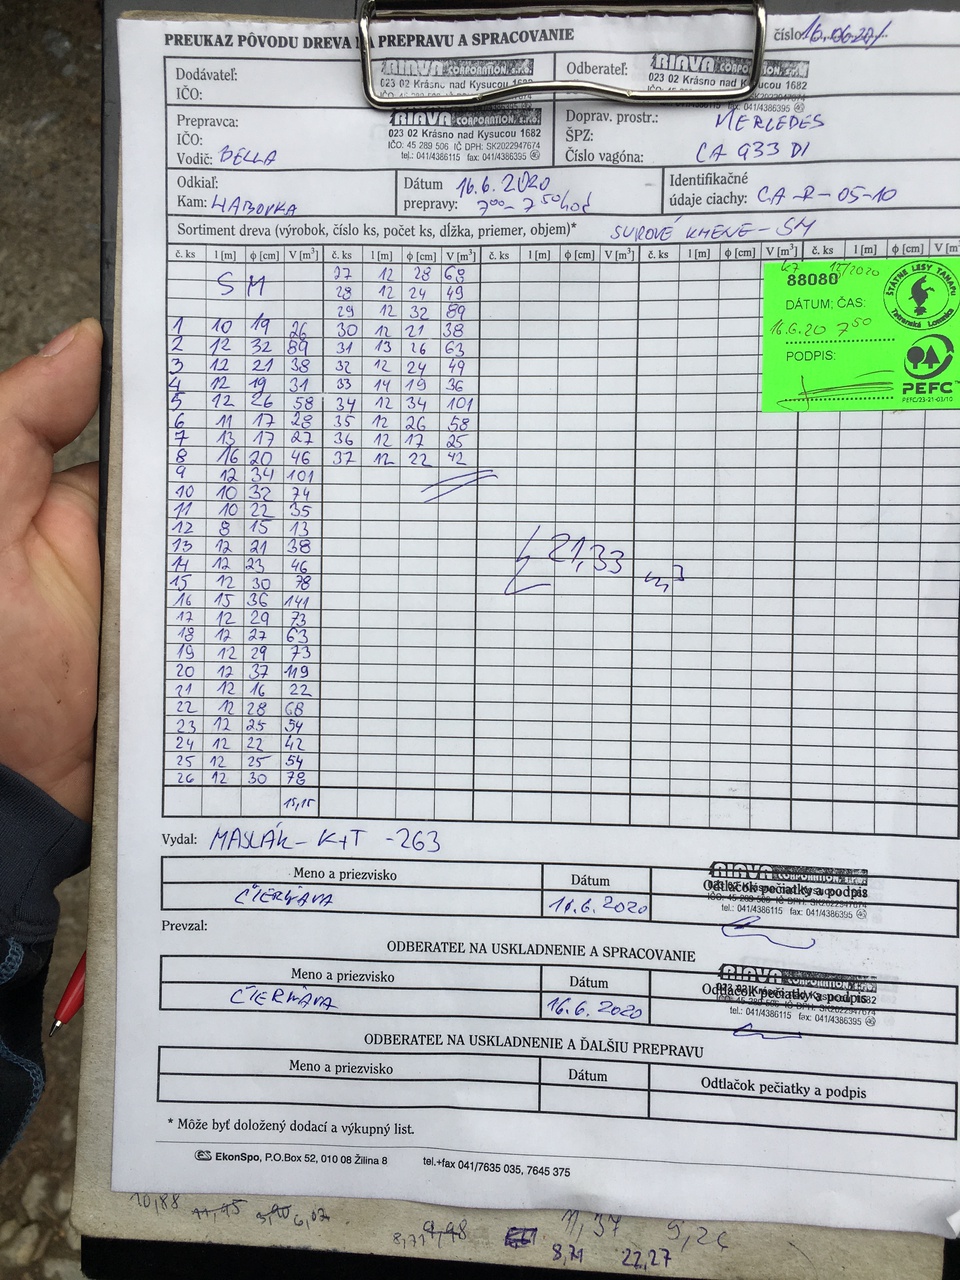 PREUKAZ PÔVODU DREVA NA PREPRAVU A SPRACOVANIE číslo: 16.06.20/1
Dodávateľ: RIAVA CORPORATION, s.r.o. Odberateľ: RIAVA CORPO ION, s.r.o.
IČO: 023 02 Krásno nad Kysucou 1682 023 02 Krásno nad Kysucou 1682
Prepravca: RIAVA CORPORATION, s.r.o. Doprav. prostr.: MERCEDES
023 02 Krásno nad Kysucou 1682
IČO: IČO: 45 289 506 IČ DPH: SK2022947674 ŠPZ:
Vodič: BELLA tel.: 041/4386115 fax: 041/4386395 Číslo vagóna: CA 933 DI
Odkiaľ: Dátum 16.6.2020 Identifikačné
Kam: HABOVKA prepravy: 700 - 7 50 hod údaje ciachy: CA-R-05-10
Sortiment dreva (výrobok, číslo ks, počet ks, dĺžka, priemer, objem)* SUROVÉ KMENE - SM
č. ks l [m] ϕ [cm] V [m³] č. ks l [m] ϕ [cm] V [m³] č. ks l [m] ϕ [cm] V [m³] č. ks l [m] ϕ [cm] V [m³] č. ks l [m] ϕ [cm] V [m
SM 27 12 28 68
28 12 24 49
29 12 32 89
1 10 19 26 30 12 21 38
2 12 32 89 31 13 26 63
3 12 21 38 32 12 24 49
4 12 19 31 33 14 19 36
5 12 26 58 34 12 34 101
6 11 17 28 35 12 26 58
7 13 17 27 36 12 17 25
8 16 20 46 37 12 22 42
9 12 34 101
10 10 32 74
11 10 22 35
12 8 15 13
13 12 21 38
14 12 23 46
15 12 30 78
16 15 36 141
17 12 29 73
18 12 27 63
19 12 29 73
20 12 37 119
21 12 16 22
22 12 28 68
23 12 25 54
24 12 22 42
25 12 25 54
26 12 30 78
15,15
Σ 21,33 m³
88080
DÁTUM; ČAS:
16.6.20 7 50
PODPIS:
ŠTÁTNE LESY TANAPu
Tatranská Lomnica
PEFC™
PEFC/23-21-03/10
Vydal: MASLÁK - K+T - 263
Meno a priezvisko Dátum Odtlačok pečiatky a podpis
ČIERŇAVA 16.6.2020
RIAVA CORPORATION, s.r.o.
tel.: 041/4386115 fax: 041/4386395
Prevzal:
ODBERATEĽ NA USKLADNENIE A SPRACOVANIE
Meno a priezvisko Dátum Odtlačok pečiatky a podpis
ČIERŇAVA 16.6.2020
RIAVA CORPORATION, s.r.o.
tel.: 041/4386115 fax: 041/4386395
ODBERATEĽ NA USKLADNENIE A ĎALŠIU PREPRAVU
Meno a priezvisko Dátum Odtlačok pečiatky a podpis
* Môže byť doložený dodací a výkupný list.
EkonSpo, P.O.Box 52, 010 08 Žilina 8 tel.+fax 041/7635 035, 7645 375
10,88 11,95 6,02 8,71 9,98 11,37 9,26
8,71 22,27